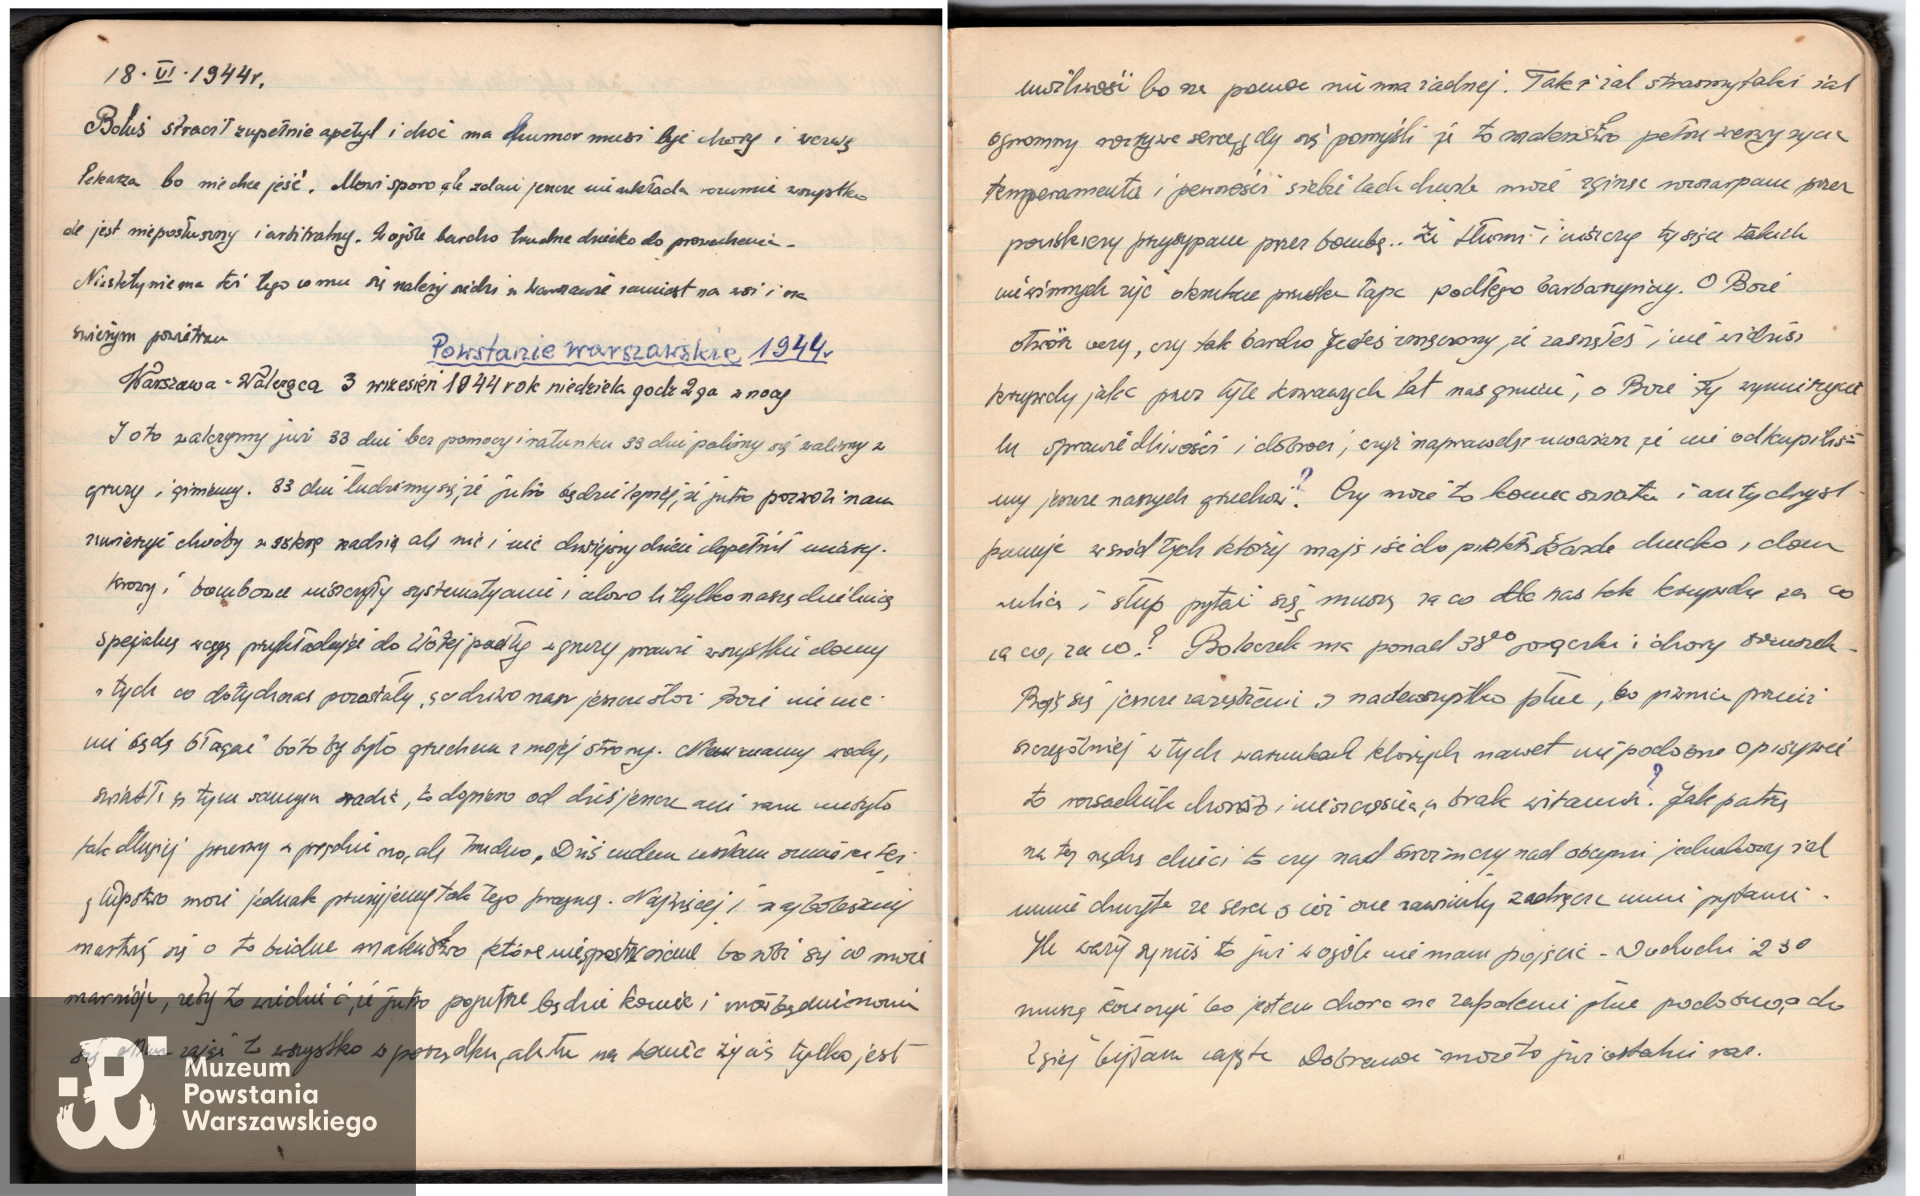 18. VI. 1944r.
Boluś stracił zupełnie apetyt i choć ma humor musi być chory i wezwę
lekarza bo nie chce jeść. Mówi sporo ale zdań jeszcze nie układa rozumie wszystko
ale jest nieposłuszny i arbitralny. W ogóle bardzo trudne dziecko do prowadzenia.
Niestety nie ma też tego co mu się należy siedzi w Warszawie zamiast na wsi i na
świeżym powietrzu
Powstanie warszawskie 1944r
Warszawa - 3 wrzesień 1944 rok niedziela godz 2ga w nocy
I oto walczymy już 33 dni bez pomocy i ratunku 33 dni palimy się walimy w
gruzy i giniemy. 33 dni łudzimy się, że jutro będzie lepiej, że jutro pozwoli nam
uwierzyć choćby w iskrę nadziei ale nic i nic dzisiejszy dzień dopełnił miary.
Krowy i bombowce niszczyły systematycznie i celowo tylko naszą dzielnicę
specjalną wagę przykładając do padły w gruzy prawie wszystkie domy
z tych co dotychczas pozostały, o dziwo nasz jeszcze stoi. Boże nie nie
nie będę błagać bo to by było grzechem z mojej strony. Nie mamy wody,
światła w tym samym, to dopiero od dziś jeszcze ani razu nie było
tak długiej przerwy w prądzie no, ale trudno. Dziś cudem
głupstwo może jednak przeżyjemy tak tego pragnę. Najwięcej i najboleśniej
martwię się o to biedne maleństwo, które niepostrzeżenie boi się co może
marnieje, żeby to wiedzieć, że jutro pojutrze będzie koniec i
się zająć to wszystko w porządku, ale tu na koniec życia tylko jest
możliwość bo na pomoc nie ma żadnej. Taki żal straszny taki żal
ogromny rozrywa serce gdy się pomyśli że to maleństwo pełne werwy życia
temperamentu i pewności siebie lada chwila może zginąć rozszarpane przez
pociski czy przysypane przez bombę.. Że tłumi i niszczy tysiące takich
niewinnych żyć okrutna pruska łapa podłego barbarzyńcy. O Boże
otwórz oczy, czy tak bardzo jesteś zmęczony, że zasnąłeś i nie widzisz
krzywdy jaka przez tyle krwawych lat nas gniecie, o Boże Ty wymierzycielu
sprawiedliwości i dobroci, czyż naprawdę uważasz, że nie odkupiliś=
my jeszcze naszych grzechów? Czy może to koniec świata i antychryst
panuje wśród tych którzy mają iść do piekła. Każde dziecko i dom
ulica i słup pytać się muszą za co dla nas tak krzywdę za co
za co, za co? Boleczek ma ponad 38 gorączki i chory
Boję się jeszcze zaziębienia a nadewszystko płuc, bo
szczególniej w tych warunkach których nawet niepodobna opisywać
to rozsadnik chorób i nieszczęścia, a brak witamin? Jak patrzę
na tę nędzę dzieci to czy nad swoim czy nad obcymi jednakowy żal
mnie chwyta za serce o cóż one zawiniły zadręczam pytami.
Ile waży synuś to już w ogóle nie mam pojęcia - Dochodzi 2 30
muszę kończyć bo jestem chora na zapalenie płuc podobno, a do
tego byłam zajęta Dobranoc może to już ostatni raz.
Muzeum
Powstania
Warszawskiego